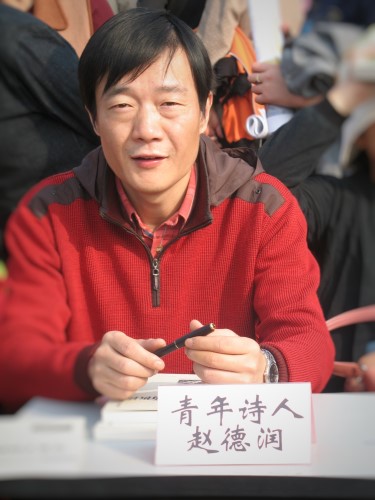 青年诗人
赵德润